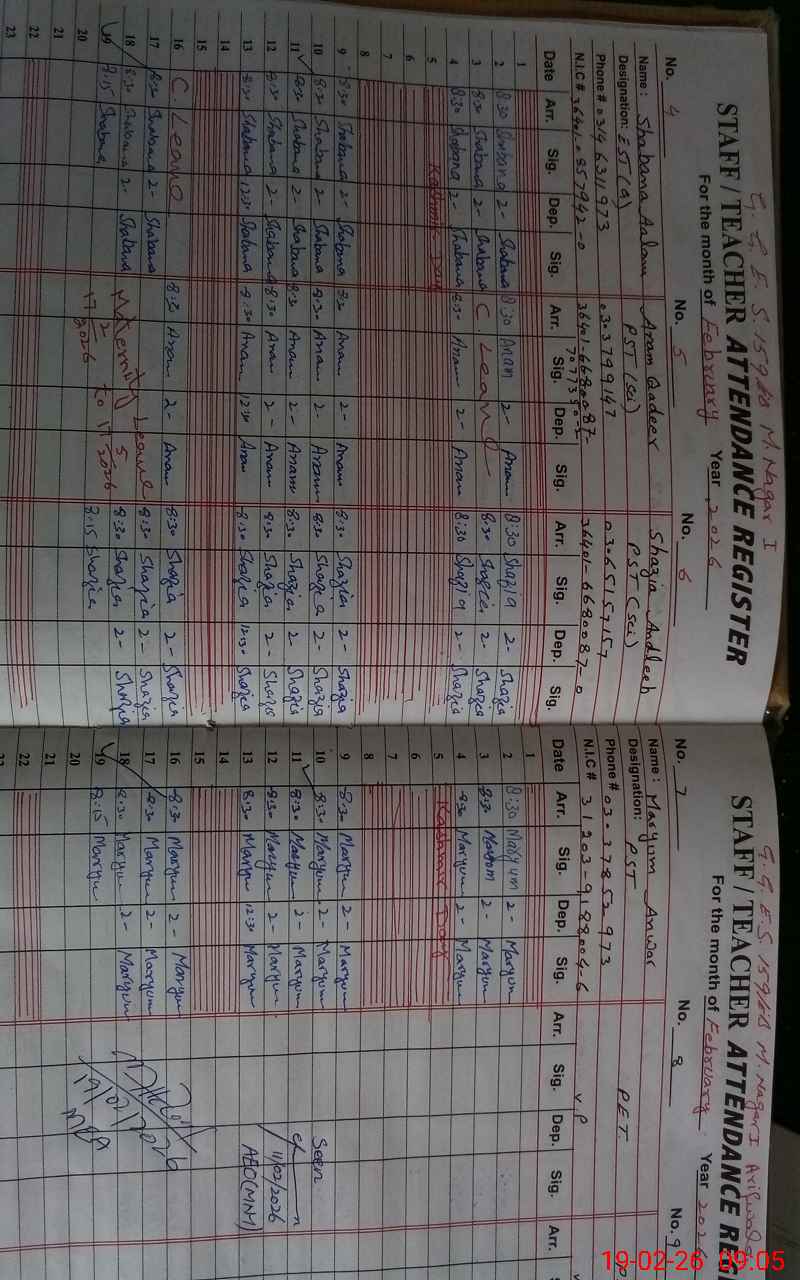 G. G. E. S. 159/EB M. Nagar I
STAFF / TEACHER ATTENDANCE REGISTER
For the month of February Year 2026
No. 4 No. 5 No. 6
Name: Shabana Aslam Anam Qadeer Shazia Andleeb
Designation: EST (a) PST (sci) PST (sci)
Phone # 03037799147 03065157157
N.I.C # 36401-6680087-0
Date Arr. Sig. Dep. Sig. Arr. Sig. Dep. Sig. Arr. Sig. Dep. Sig.
1
2 8:30 Shabana 2- Shabana 8:30 Anam 2- Anam 8:30 Shazia 2- Shazia
3 8:30 Shabana 2- Shabana C. Leave 8:30 Shazia 2- Shazia
4 8:30 Shabana 2- Shabana 8:30 Anam 2- Anam 8:30 Shazia 2- Shazia
5 Kashmir Day
6
7
8
9 8:30 Shabana 2- Shabana 8:30 Anam 2- Anam 8:30 Shazia 2- Shazia
10 8:30 Shabana 2- Shabana 8:30 Anam 2- Anam 8:30 Shazia 2- Shazia
11 8:30 Shabana 2- Shabana 8:30 Anam 2- Anam 8:30 Shazia 2- Shazia
12 8:30 Shabana 2- Shabana 8:30 Anam 2- Anam 8:30 Shazia 2- Shazia
13 8:30 Shabana 12:30 Shabana 8:30 Anam 12:30 Anam 8:30 Shazia 12:30 Shazia
14
15
16 C. Leave 8:30 Anam 2- Anam 8:30 Shazia 2- Shazia
17 8:30 Shabana 2- Shabana Maternity Leave 8:30 Shazia 2- Shazia
18 8:30 Shabana 2- Shabana 17/2/2026 to 8:30 Shazia 2- Shazia
19 8:15 Shabana 8:15 Shazia
20
21
22
23
G. G. E. S. 159/EB M. Nagar I Arifwala
STAFF / TEACHER ATTENDANCE REG
For the month of February Year 2026
No. 7 No. 8 No. 9
Name: Maryum Anwar
Designation: PST PET
Phone #
N.I.C # 31203-9188004-6 V.P
Date Arr. Sig. Dep. Sig. Arr. Sig. Dep. Sig. Arr.
1
2 8:30 Maryum 2- Maryum
3 8:30 Maryum 2- Maryum
4 8:30 Maryum 2- Maryum
5 Kashmir Day
6
7
8
9 8:30 Maryum 2- Maryum
10 8:30 Maryum 2- Maryum Seen
11 8:30 Maryum 2- Maryum
12 8:30 Maryum 2- Maryum 11/02/2026
13 8:30 Maryum 12:30 Maryum AEO (MN1)
14
15
16 8:30 Maryum 2- Maryum
17 8:30 Maryum 2- Maryum
18 8:30 Maryum 2- Maryum
19 8:15 Maryum 19/02/2026
20 MEA
21
22
19-02-26 09:05